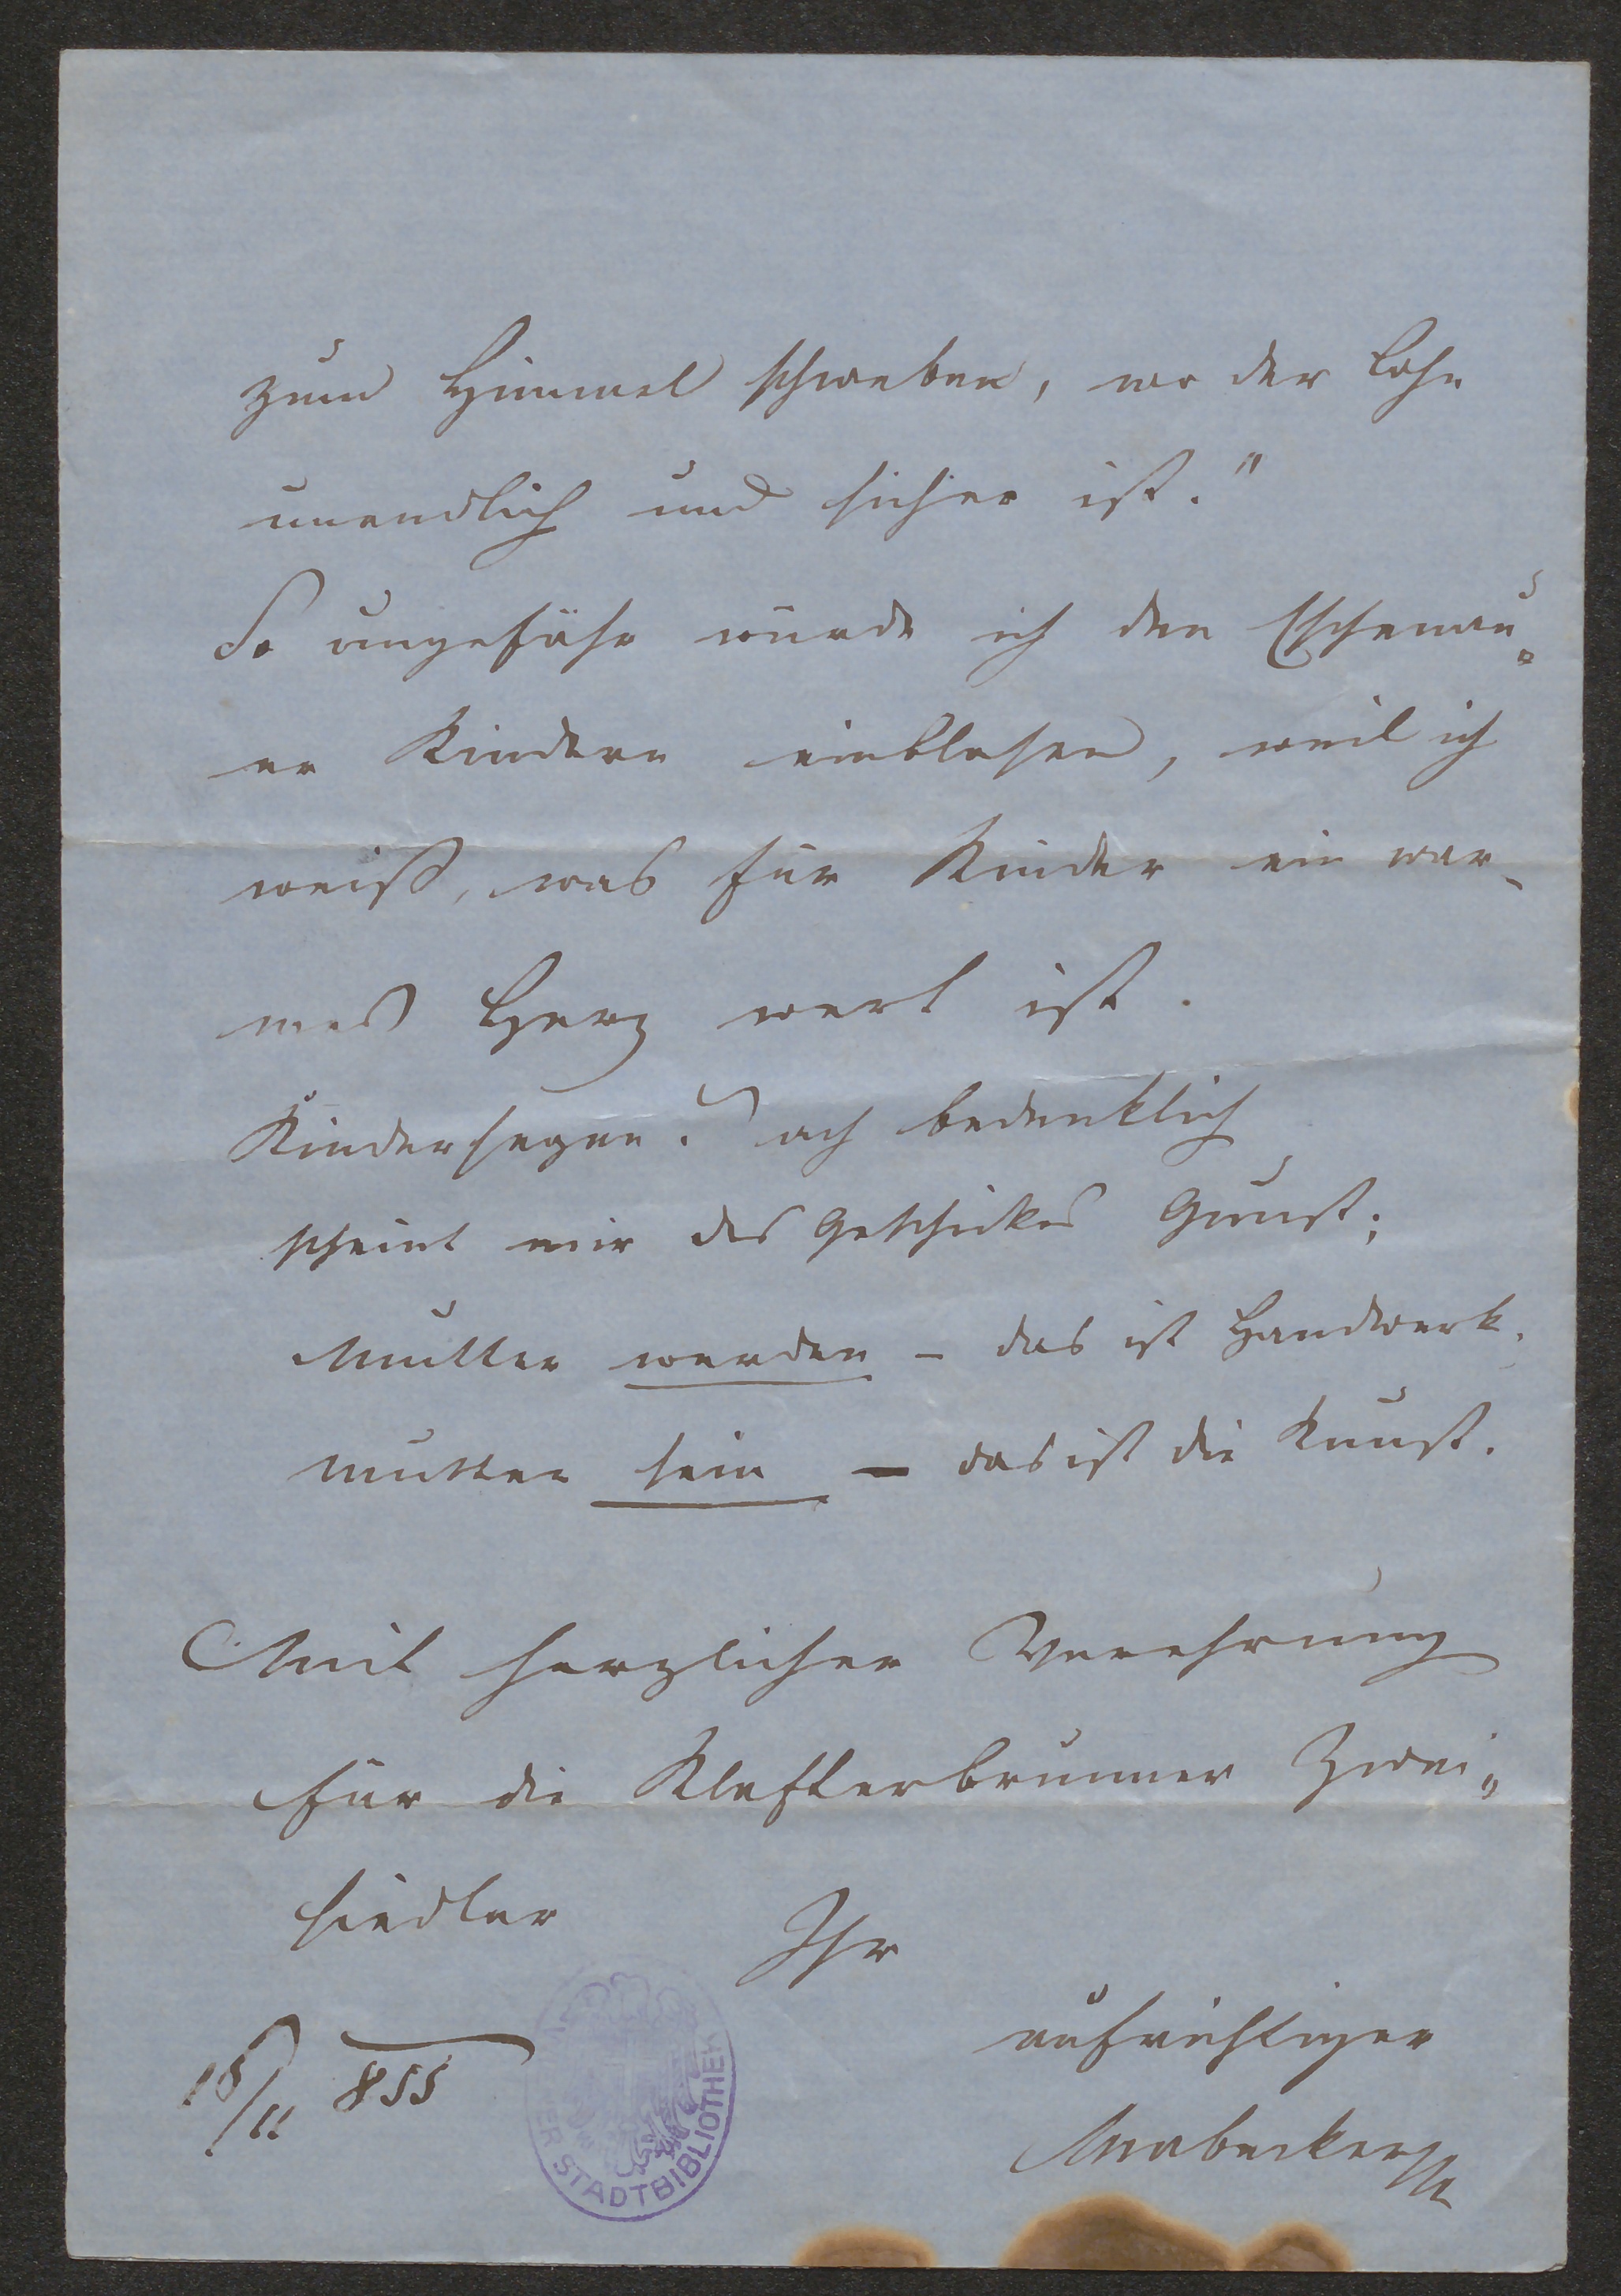 zum Himmel schweben, wo der Lohn
unendlich und sicher ist."
So ungefähr würde ich den Eschenau=
er Kindern einblasen, weil ich
weiß, was für Kinder ein war-
mes Herz wert ist.
Kindersegen? ach bedenklich
scheint mir des Geschickes Gunst;
Mutter werden - das ist Handwerk.
Mutter sein - das ist die Kunst.
Mit herzlicher Verehrung
für die Klafterbrunner Zwei=
siedler
Ihr
aufrichtiger
18/11 855
STADTBIBLIOTHEK